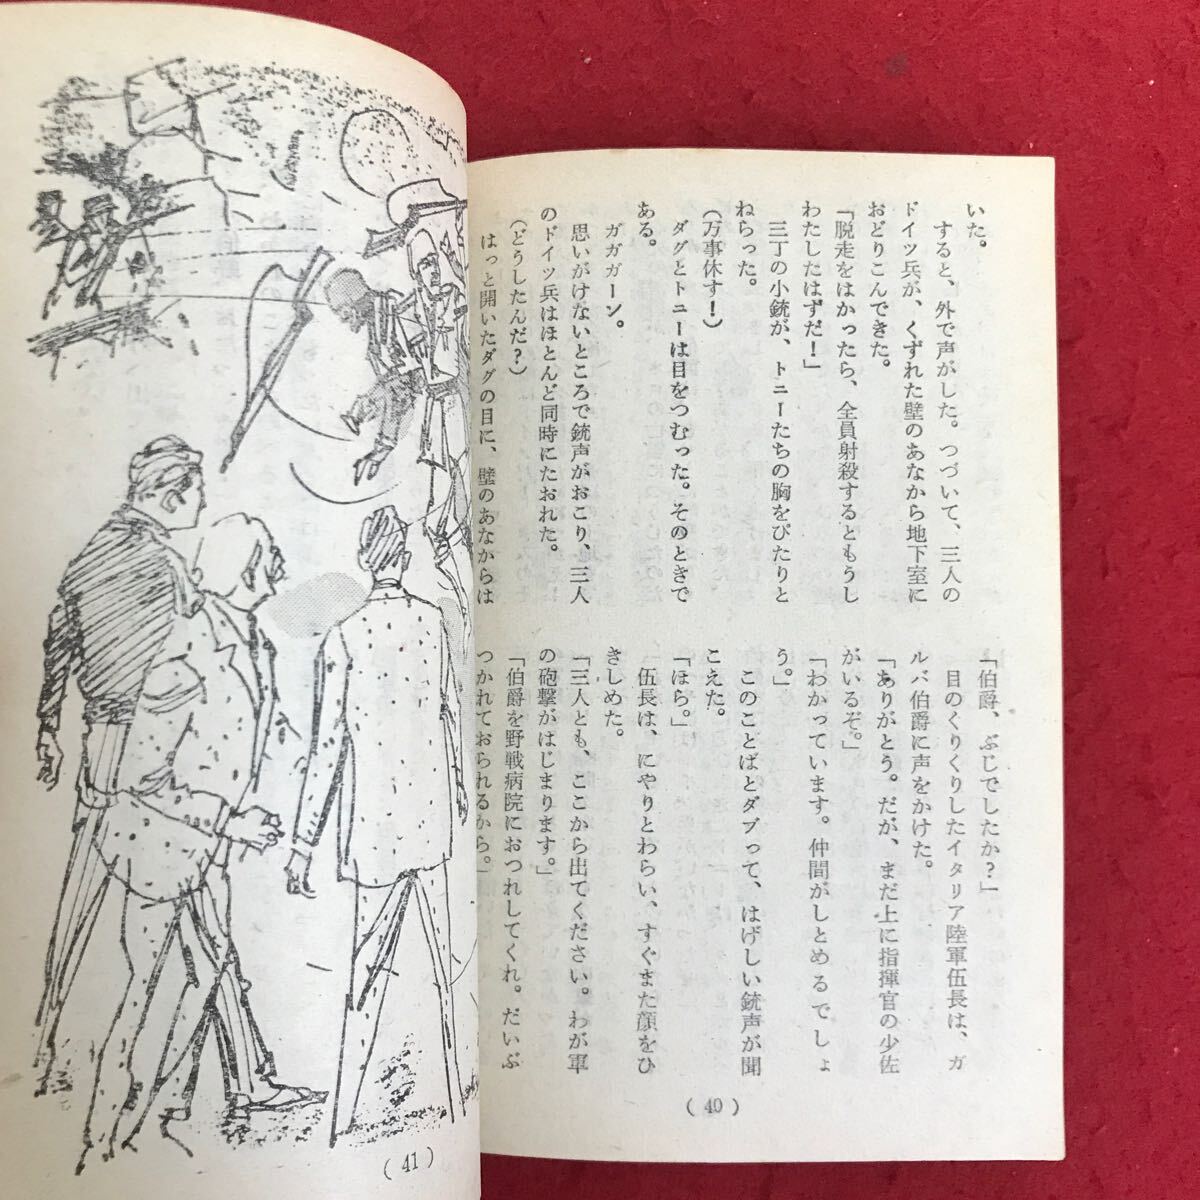 いた。
すると、外で声がした。つづいて、三人の
ドイツ兵が、くずれた壁のあなから地下室に
おどりこんできた。
「脱走をはかったら、全員射殺するともうし
わたしたはずだ！」
三丁の小銃が、トニーたちの胸をぴたりと
ねらった。
（万事休す！）
ダグとトニーは目をつむった。そのときで
ある。
ガガガーン。
思いがけないところで銃声がおこり、三人
のドイツ兵はほとんど同時にたおれた。
（どうしたんだ？）
はっと開いたダグの目に、壁のあなからは
「伯爵、ぶじでしたか？」
目のくりくりしたイタリア陸軍伍長は、ガ
ルバ伯爵に声をかけた。
「ありがとう。だが、まだ上に指揮官の少佐
がいるぞ。」
「わかっています。仲間がしとめるでしょ
う。」
このことばとダブって、はげしい銃声が聞
こえた。
「ほら。」
伍長は、にやりとわらい、すぐまた顔をひ
きしめた。
「三人とも、ここから出てください。わが軍
の砲撃がはじまります。」
「伯爵を野戦病院におつれしてくれ。だいぶ
つかれておられるから。」
( 40 )
( 41 )